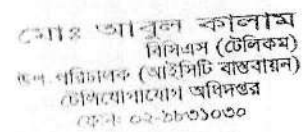 মোঃ আবুল কালাম
বিসিএস (টেলিকম)
উপ পরিচালক (আইসিটি বাস্তবায়ন)
টেলিযোগাযোগ অধিদপ্তর
ফোন: ০২-৮৮৩১০৩০